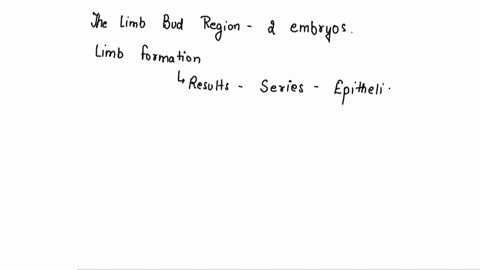 The Limb Bud Region - 2 embryos.
Limb formation
↳ Results - Series - Epitheli.